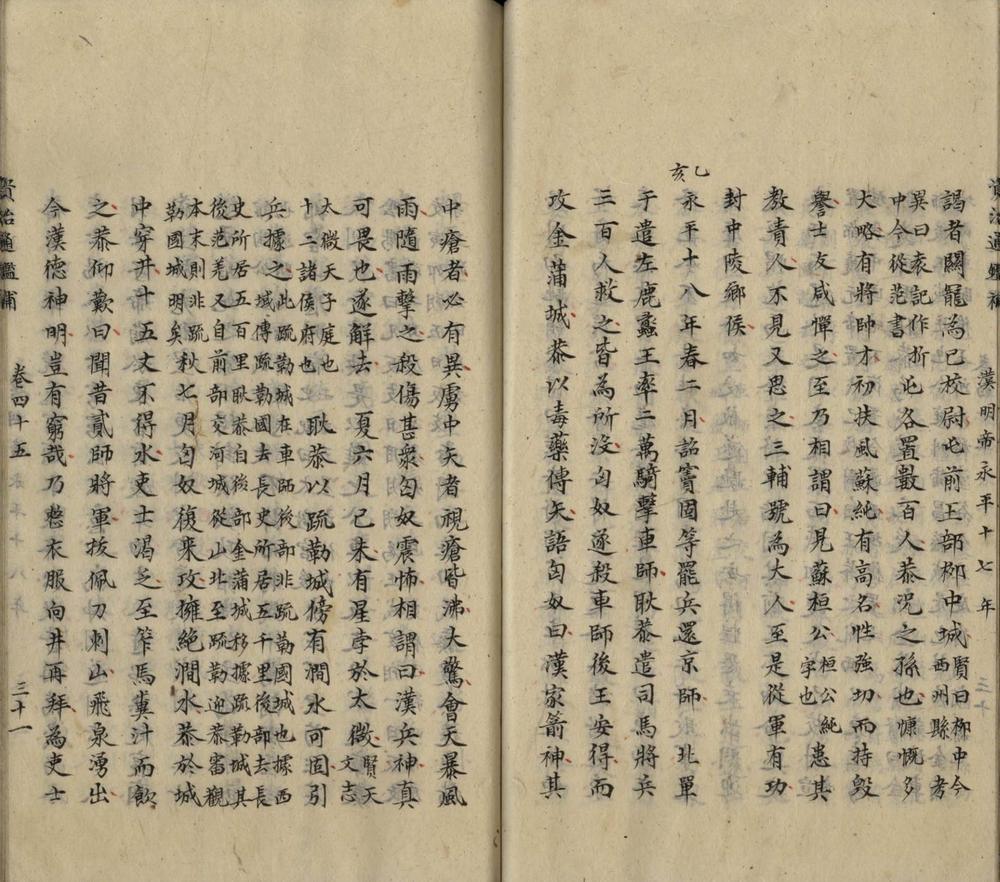 漢明帝永平十七年
三十
謁者關寵為己校尉屯前王部柳中城賢曰柳中今西州縣考
異曰袁記作折中今從范書屯各置數百人恭況之孫也慷慨多
大略有將帥才初扶風蘇純有高名性強切而持毀
譽士友咸憚之至乃相謂曰見蘇桓公桓公純字也患其
教責人不見又思之三輔號為大人至是從軍有功
封中陵鄉侯
乙亥
永平十八年春二月詔竇固等罷兵還京師北單
于遣左鹿蠡王率二萬騎擊車師耿恭遣司馬將兵
三百人救之皆為所沒匈奴遂殺車師後王安得而
攻金蒲城恭以毒藥傅矢語匈奴曰漢家箭神其
中瘡者必有異虜中矢者視瘡皆沸大驚會天暴風
雨隨雨擊之殺傷甚衆匈奴震怖相謂曰漢兵神真
可畏也遂解去夏六月己未有星孛於太微賢天文志
太微天子庭也十二諸侯府也耿恭以疏勒城傍有澗水可固引
兵據之此疏勒城在車師後部非疏勒國城也據西域傳疏勒國去長史所居五千里後部去長
史所居五百里耿恭自後部金蒲城移據疏勒城其後范羌又自前部交河城從山北至疏勒迎恭審觀
本末則非疏勒國城明矣秋七月匈奴復來攻擁絶澗水恭於城
中穿井十五丈不得水吏士渴乏至笮馬糞汁而飲
之恭仰歎曰聞昔貳師將軍拔佩刀刺山飛泉湧出
今漢德神明豈有窮哉乃整衣服向井再拜為吏士
卷四十五
三十一